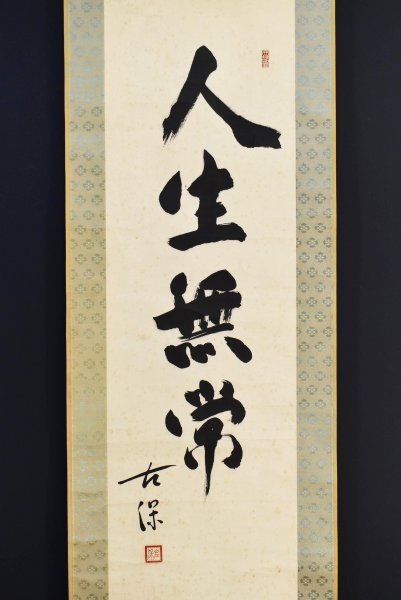 人生無常
古深